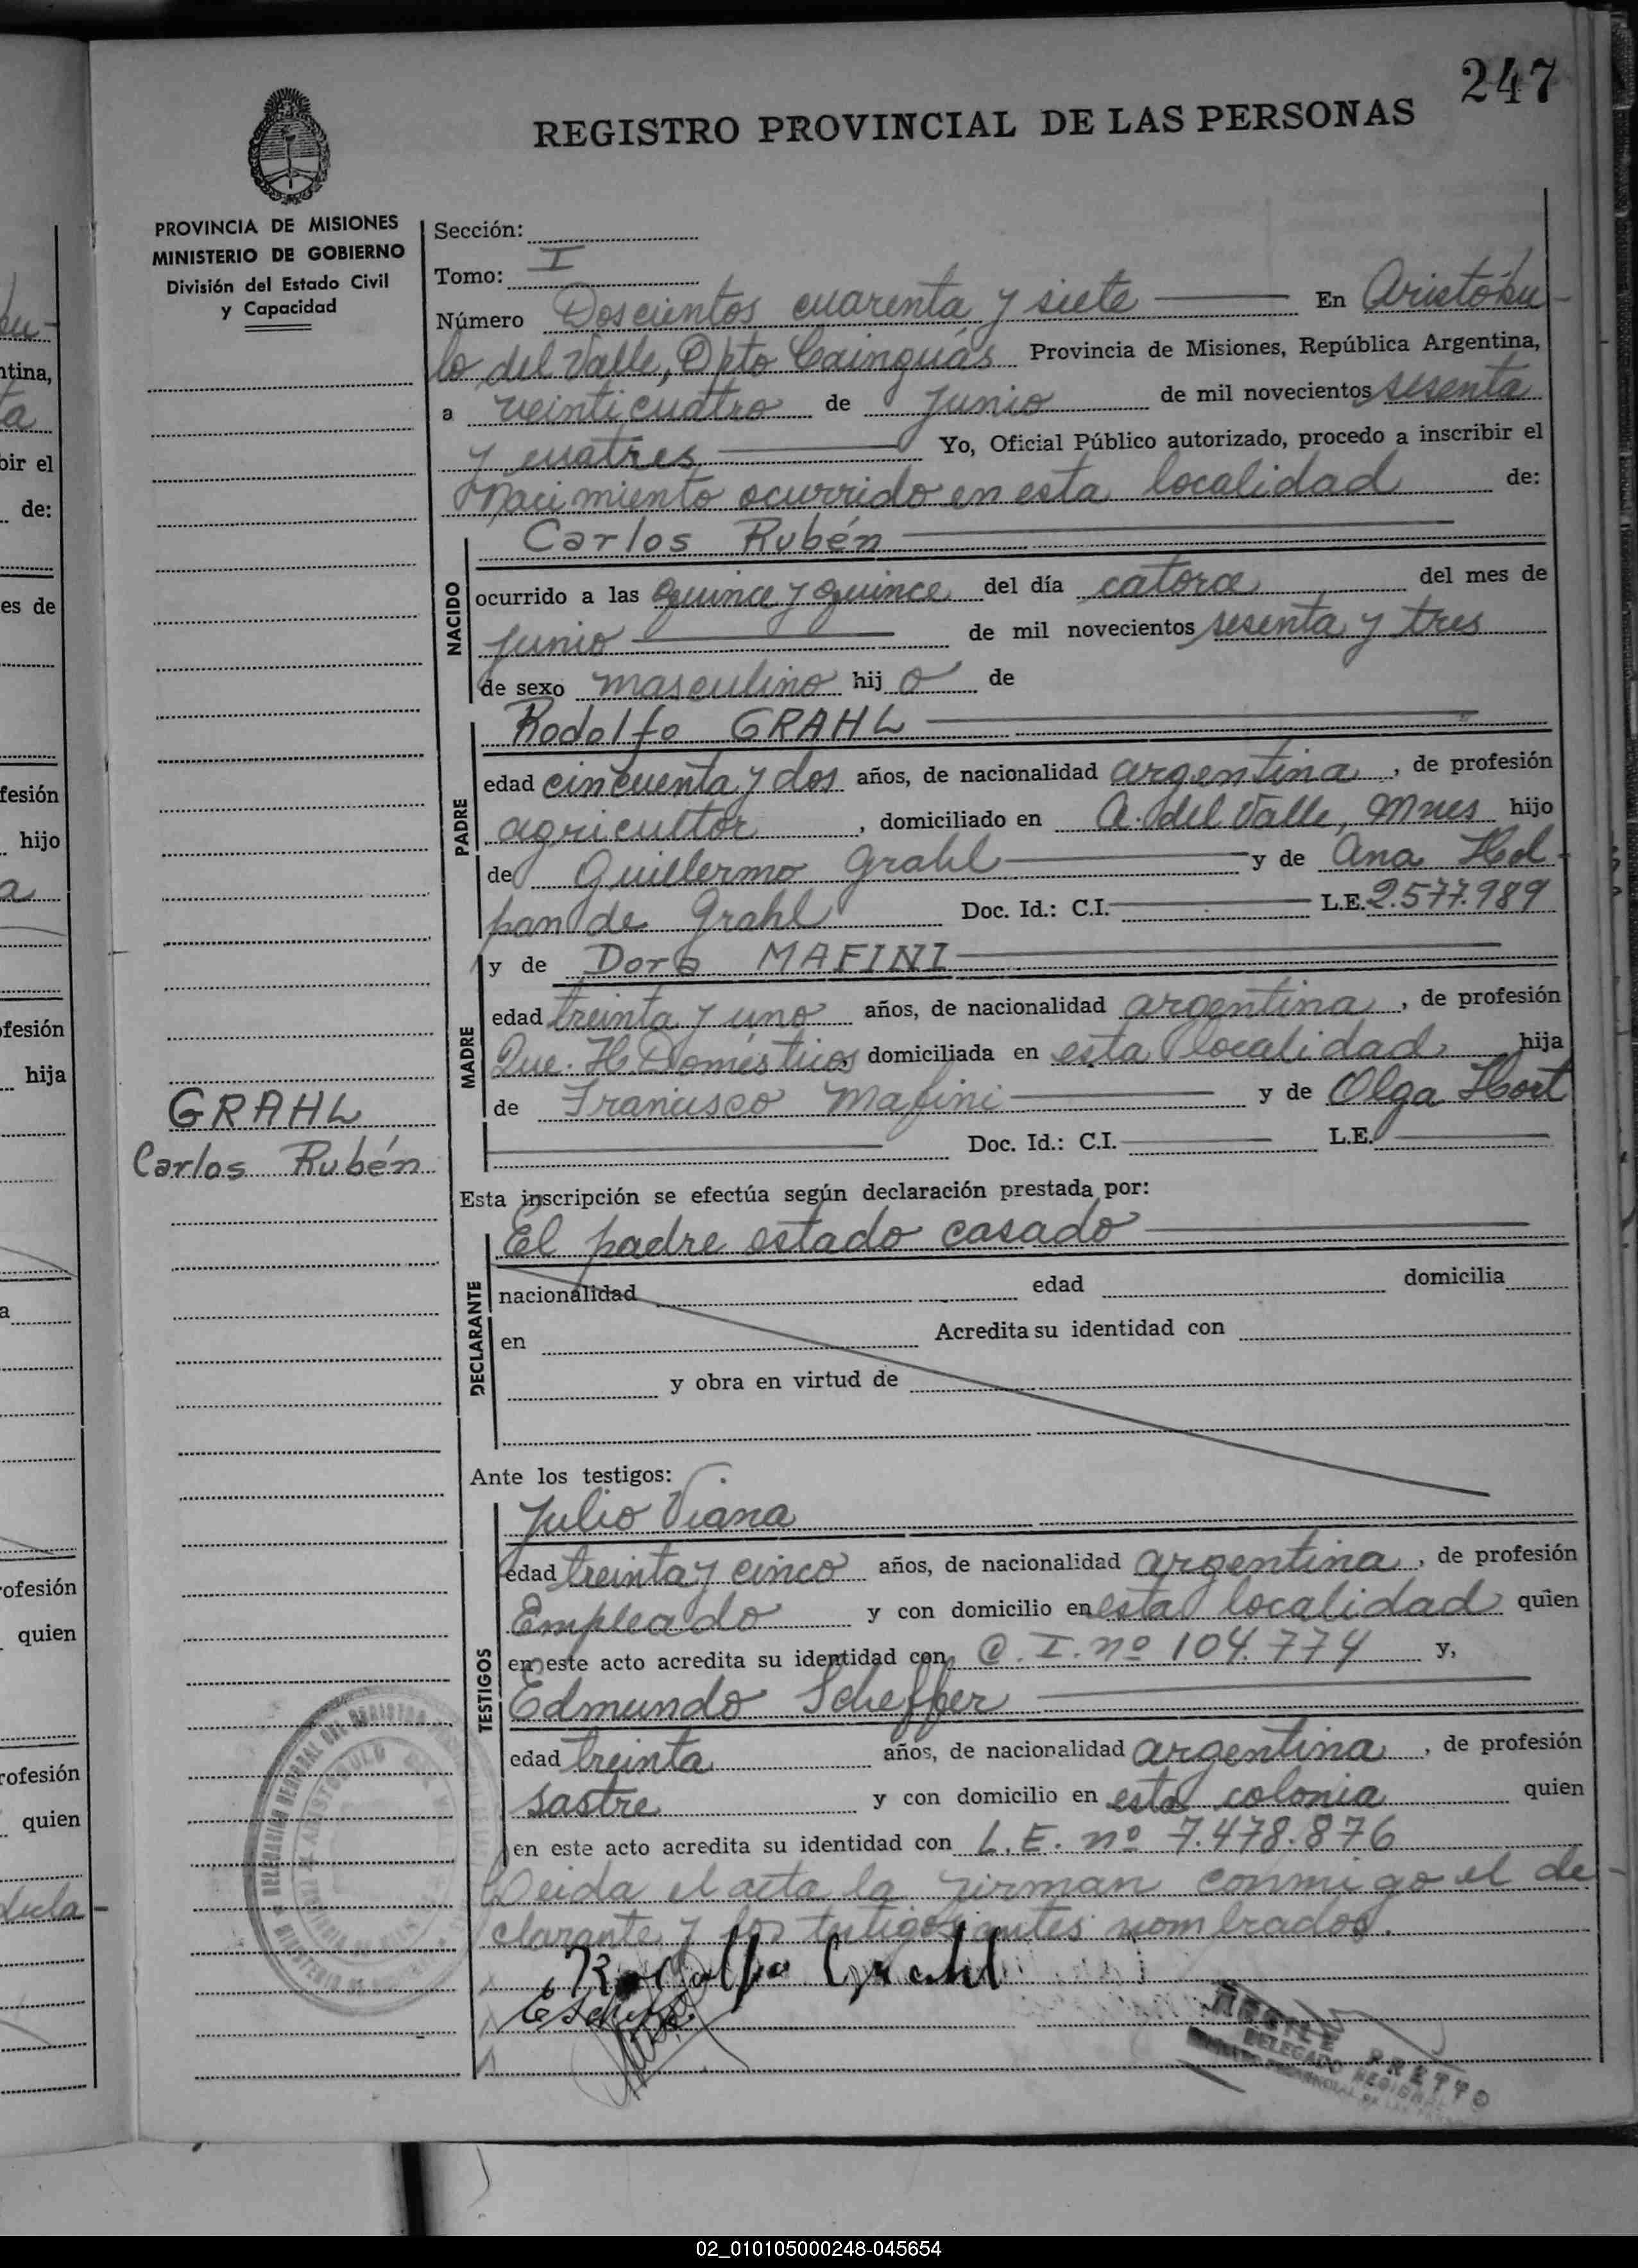 247
REGISTRO PROVINCIAL DE LAS PERSONAS
PROVINCIA DE MISIONES
MINISTERIO DE GOBIERNO
División del Estado Civil
y Capacidad
Sección:
Tomo: I
Número Doscientos cuarenta y siete En Aristóbu-
lo del Valle, Dpto Cainguás Provincia de Misiones, República Argentina,
a veinticuatro de Junio de mil novecientos sesenta
y cuatres Yo, Oficial Público autorizado, procedo a inscribir el
Nacimiento ocurrido en esta localidad de:
NACIDO
Carlos Rubén
ocurrido a las quince y quince del día catorce del mes de
junio de mil novecientos sesenta y tres
de sexo masculino hij o de
PADRE
Rodolfo GRAHL
edad cincuenta y dos años, de nacionalidad argentina, de profesión
agricultor, domiciliado en A. del Valle, Mnes hijo
de Guillermo Grahl y de Ana Hol-
pan de Grahl Doc. Id.: C.I. L.E. 2.577.989
MADRE
y de Dora MAFINI
edad treinta y uno años, de nacionalidad argentina, de profesión
Que. H. Domésticos, domiciliada en esta localidad hija
de Francisco Mafini y de Olga Hort
Doc. Id.: C.I. L.E.
GRAHL
Carlos Rubén
Esta inscripción se efectúa según declaración prestada por:
DECLARANTE
El padre estado casado
nacionalidad edad domicilia
en Acredita su identidad con
y obra en virtud de
Ante los testigos:
TESTIGOS
Julio Viana
edad treinta y cinco años, de nacionalidad argentina, de profesión
Empleado y con domicilio en esta localidad quien
en este acto acredita su identidad con C. I. nº 104.774 y,
Edmundo Scheffer
edad treinta años, de nacionalidad argentina, de profesión
sastre y con domicilio en esta colonia quien
en este acto acredita su identidad con L. E. nº 7.478.876
Leida el acta la firman conmigo el de-
clarante y los testigos antes nombrados.
Rodolfo Grahl
PRETTO
DELEGADO REGIONAL
02_010105000248-045654